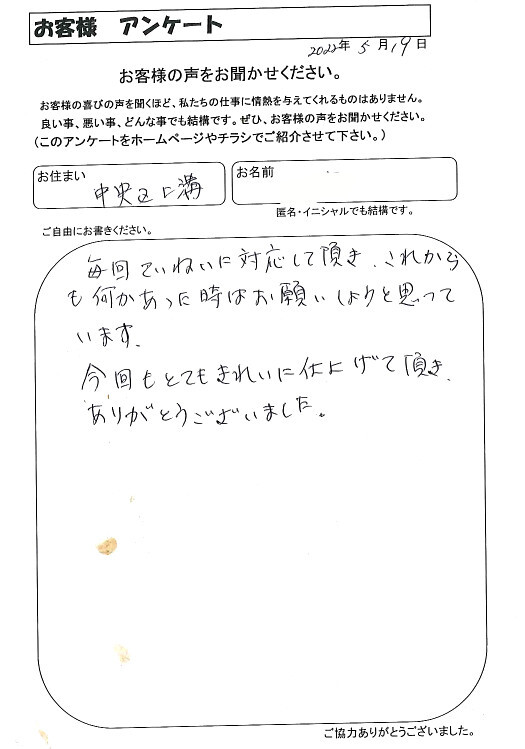 お客様 アンケート
2022年 5月 19日
お客様の声をお聞かせください。
お客様の喜びの声を聞くほど、私たちの仕事に情熱を与えてくれるものはありません。
良い事、悪い事、どんな事でも結構です。ぜひ、お客様の声をお聞かせください。
(このアンケートをホームページやチラシでご紹介させて下さい。)
お住まい
中央区上溝
お名前
匿名・イニシャルでも結構です。
ご自由にお書きください。
毎回ていねいに対応して頂き、これから
も何かあった時はお願いしようと思って
います。
今回もとてもきれいに仕上げて頂き、
ありがとうございました。
ご協力ありがとうございました。